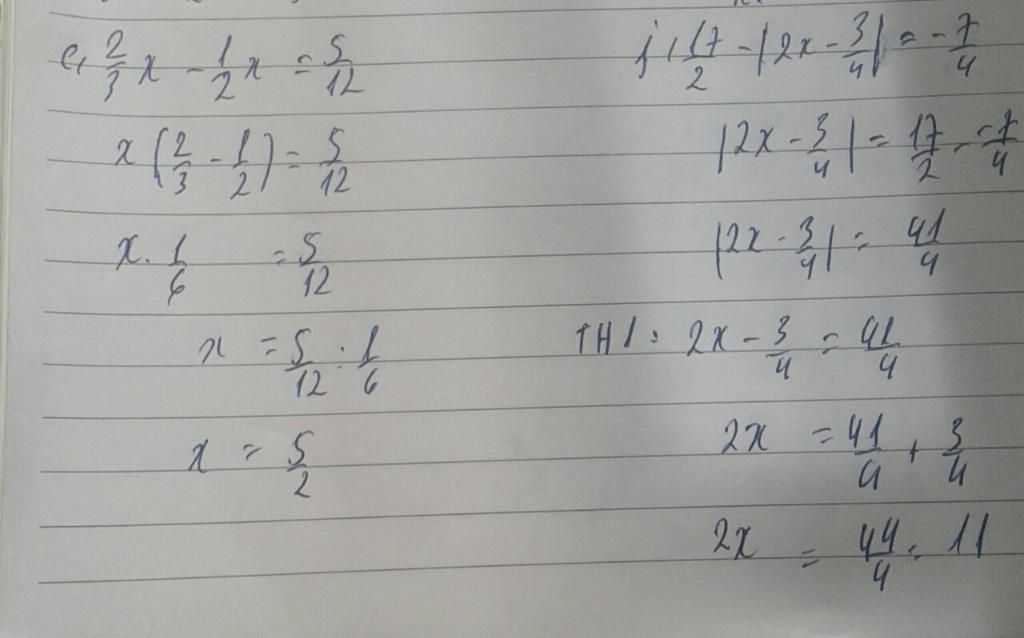 e, 2/3 x - 1/2 x = 5/12
x (2/3 - 1/2) = 5/12
x . 1/6 = 5/12
x = 5/12 : 1/6
x = 5/2
j, 17/2 - |2x - 3/4| = -7/4
|2x - 3/4| = 17/2 - -7/4
|2x - 3/4| = 41/4
TH1: 2x - 3/4 = 41/4
2x = 41/4 + 3/4
2x = 44/4 = 11